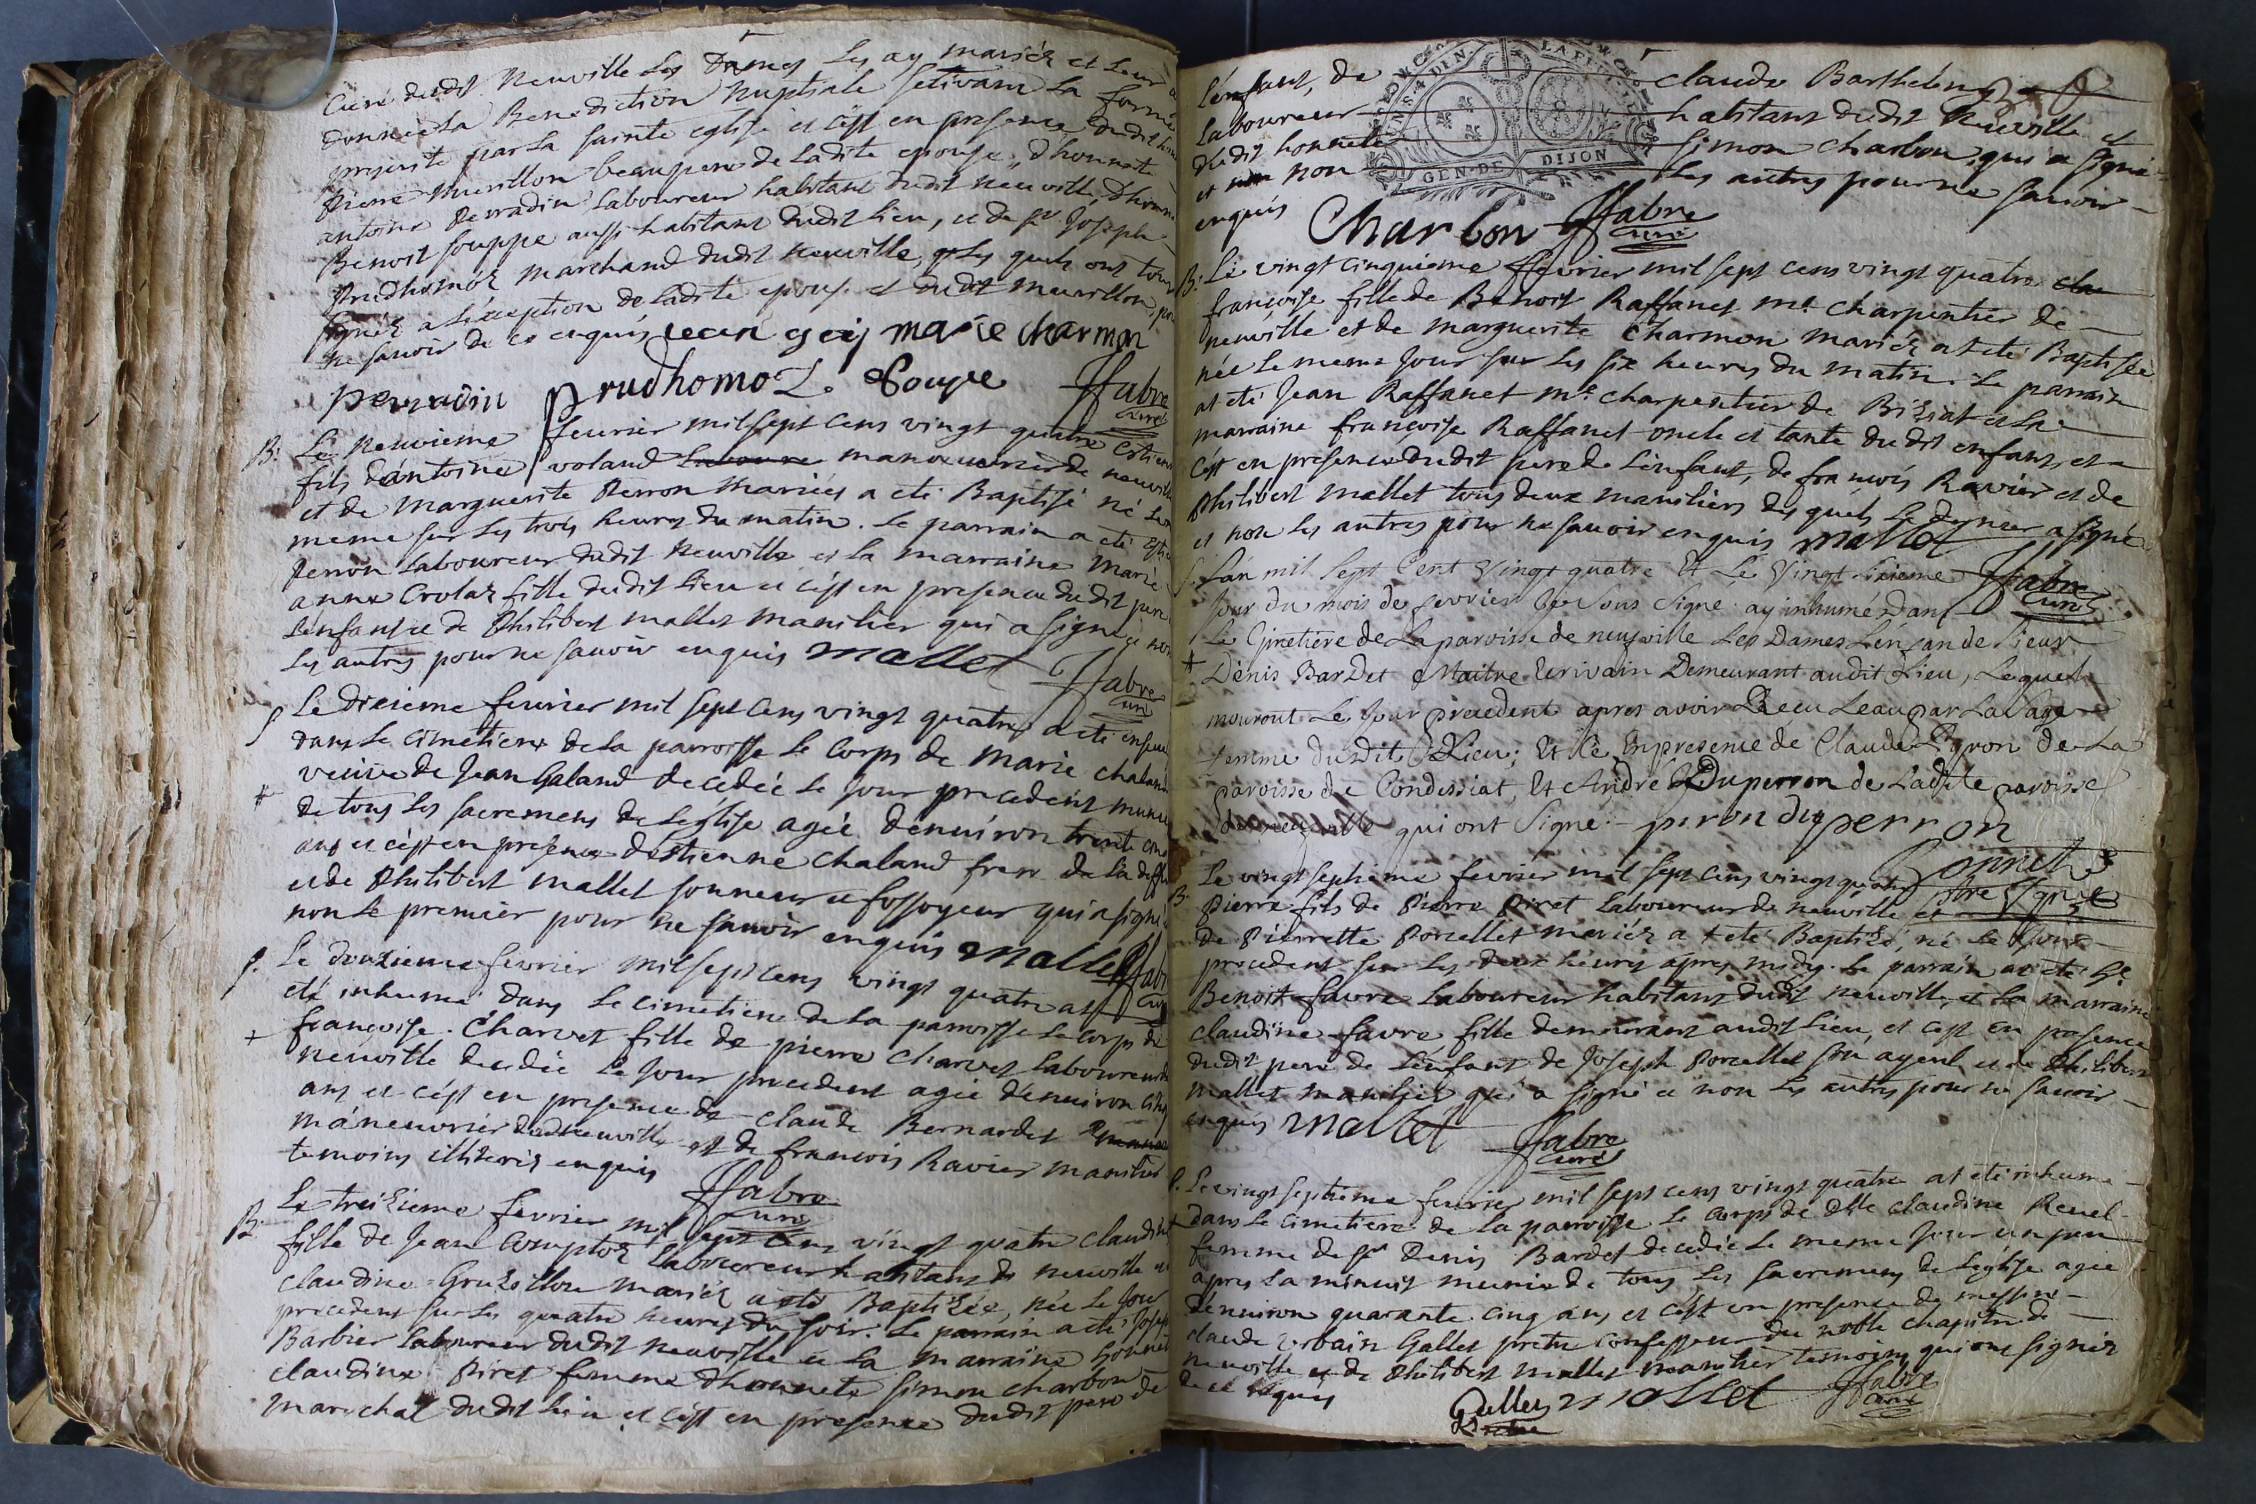 Curé dudit Neuville Les Dames Les ay mariéz et Leur
donné La Benediction Nuptiale suivant La forme
prescrite par La Sainte eglise et c'est en presence dudit
pierre Murillon beaupere de Ladite epouse, d'honnete
antoine Perradin Laboureur habitant dudit Neuville, d'honn
Benoit Souppe aussi habitant dudit Lieu, et de Sr Joseph
Prudhoméz marchand dudit Neuville, Les quels ont tous
signéz a L'exception de Ladite epouse et dudit Murillon, po
ne savoir de ce enquis marie charmon
Perradin Prudhomo Soupe ffabre
curé
B. Le Neuvieme feurier mil sept cens vingt quatre Estienne
fils d'antoine voland manoeuvrier de neuville
et de Marguerite Perron Mariéz a eté Baptisé né
meme sur Les trois heures du matin. Le parrain a eté
Perron Laboureur dudit Neuville et La marraine Marie
anne Crolaz fille dudit Lieu et c'est en presence dudit pere
L'enfant et de Philibert mallet manilier qui a signé et non
Les autres pour ne sauoir enquis Mallet
ffabre
curé
S Le dixieme feurier mil sept cens vingt quatre a eté
dans Le cimetiere de La parroisse Le Corps de Marie chaland
veuve de Jean Galand decedée Le Jour precedent munie
de tous Les sacremens de L'eglise agée denuiron trente cinq
ans et c'est en presence d'estienne chaland frere de La
et de Philibert mallet sonneur et fossoyeur qui a signé
non Le premier pour ne sauoir enquis Mallet ffabre
S. Le douzieme feurier mil sept cens vingt quatre at
été inhumé dans Le cimetiere de La parroisse Le Corps de
françoise Charvet fille de pierre Charvet Laboureur de
neuville decedée Le Jour precedent agée d'enuiron cinq
ans et c'est en presence de Claude Bernardet
maneuvrier dudit neuville et de francois Ravier manilier
temoins illiteréz enquis ffabre
curé
B. Le treizieme feurier mil sept cens vingt quatre claudine
fille de Jean Comptoz Laboureur habitant de neuville et
claudine Gruzillon mariéz a eté Baptizée, née Le Jour
precedent sur Les quatre heures du soir. Le parrain a eté Joseph
Barbier Laboureur dudit neuville et La marraine honnete
claudine Piret femme d'honnete simon charbon
marechal dudit Lieu et c'est en presence dudit pere de
L'enfant, de claude Barthelemy
Laboureur habitant dudit Neuville et
dudit honnete Simon Charbon, qui a signé
et non Les autres pour ne sauoir
enquis
GEN. DE DIJON
Charbon ffabre
curé
B. Le vingt cinquieme ffeurier mil sept cens vingt quatre
françoise fille de Benoit Raffanet me charpentier de
neuville et de marguerite Charmon mariéz at eté Baptisée
née Le meme Jour sur Les six heures du matin. Le parrain
at eté Jean Raffanet me charpentier de Biziat et La
marraine françoise Raffanet oncle et tante du dit enfant, et
c'est en presence dudit pere de L'enfant, de francois Ravier et de
Philibert mallet tous deux maniliers des quels Le dernier a signé
et non Les autres pour ne sauoir enquis Mallet
ffabre
curé
S. L'an mil Sept Cent Vingt quatre Et Le Vingt Sixieme
Jour du mois de feurier Je Sous Signé ay inhumé Dans
Le Cimetiere de La paroisse de neufville Les Dames L'enfan de Sieur
Dénis Bardet Maitre Ecrivain Demeurant audit Lieu, Lequel
mourut Le Jour precedent apres avoir Receu L'eau par La Sage
femme dudit Lieu; Et Ce En presence de Claude Pyron de La
paroisse de Condessiat, Et André Duperron de Ladite paroisse
de neufville qui ont Signé. piron du perron
Bonnet
B. Le vingt septieme feurier mil sept cens vingt quatre
Pierre fils de Pierre Piret Laboureur de neuville et
de Pierrette Porcellet mariéz a eté Baptizé, né Le Jour
precedent sur Les deux heures apres midy. Le parrain at eté he
Benoit favre Laboureur habitant dudit neuville, et La marraine
claudine favre fille demeurant audit Lieu, et c'est en presence
dudit pere de L'enfant de Joseph Porcellet son ayeul et de Philibert
Mallet manilier qui a signé et non Les autres pour ne sauoir
enquis Mallet ffabre
curé
S. Le vingt septieme feurier mil sept cens vingt quatre at eté inhumé
dans Le cimetiere de La parroisse Le Corps de dlle claudine Revel
femme de Sr Denis Bardet decedée Le meme Jour un peu
apres La minuit munie de tous Les sacremens de L'eglise agée
d'enuiron quarante cinq ans, et c'est en presence de messire
claude Urbain Gallet pretre confesseur du noble chapitre de
neuville et de Philibert Mallet manilier temoins qui ont signéz
de ce enquis
Gallet Mallet ffabre
curé